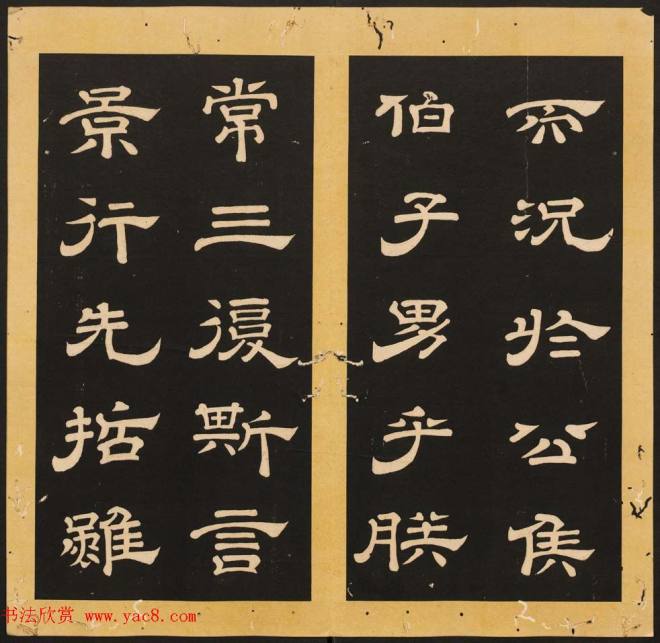 而況於公侯
伯子男乎朕
常三復斯言
景行先哲雖
书法欣赏 www.yac8.com